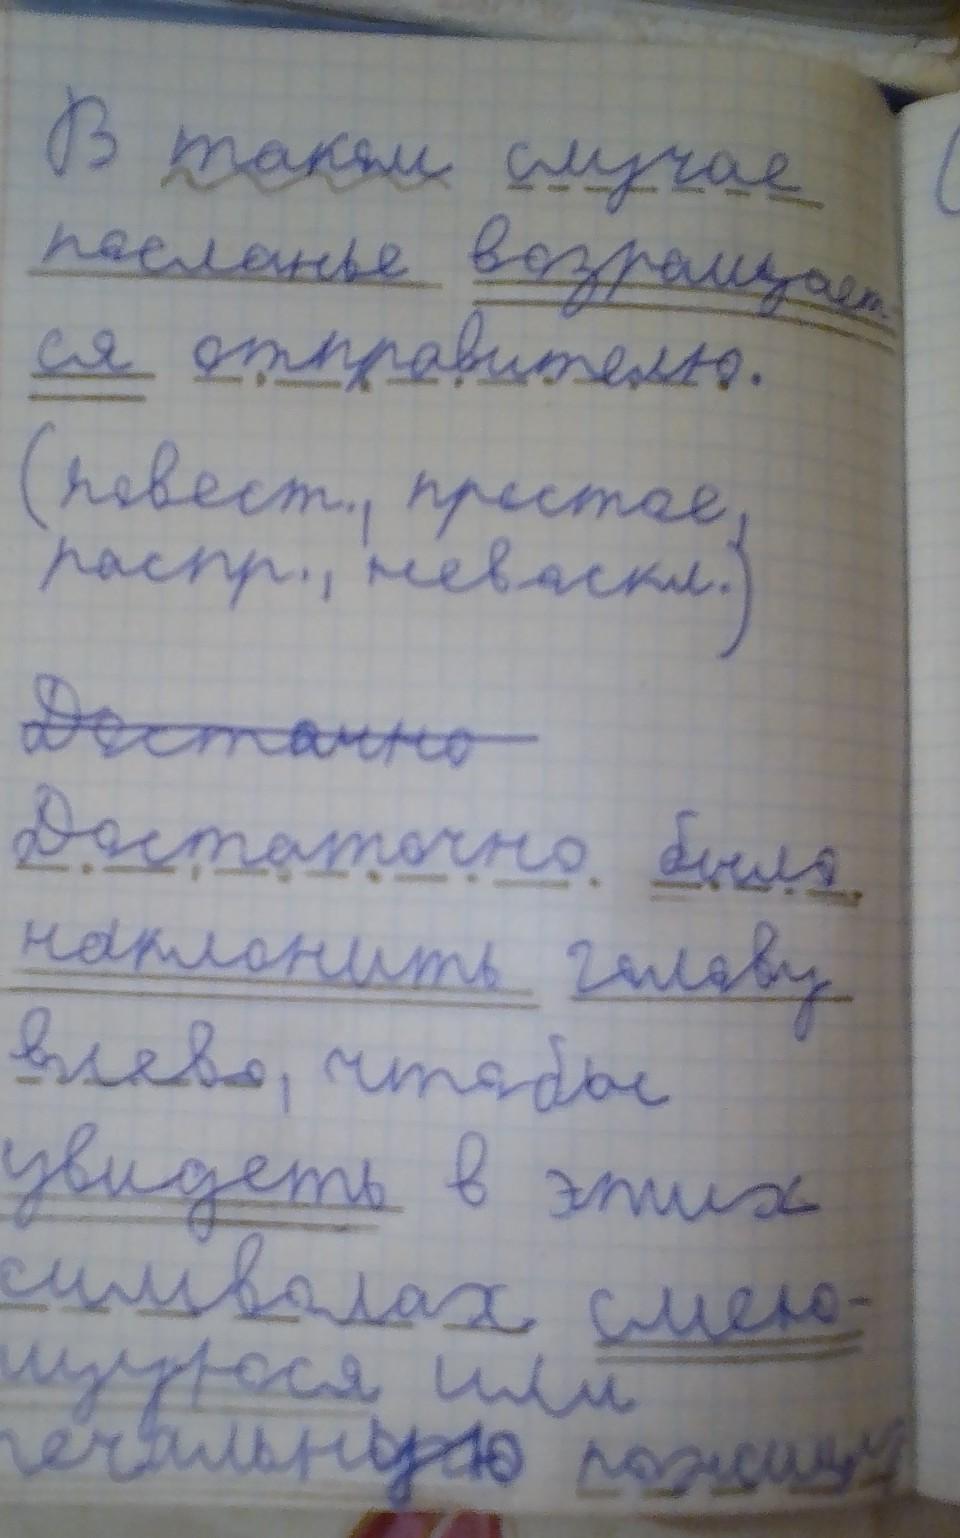 В таком случае
посланье возращает-
ся отправителю.
(повест., простое,
распр., неваскл.)
Достачно
Достаточно было
наклонить голову
влево, чтобы
увидеть в этих
символах смею-
щуюся или
печальную рожицу
(